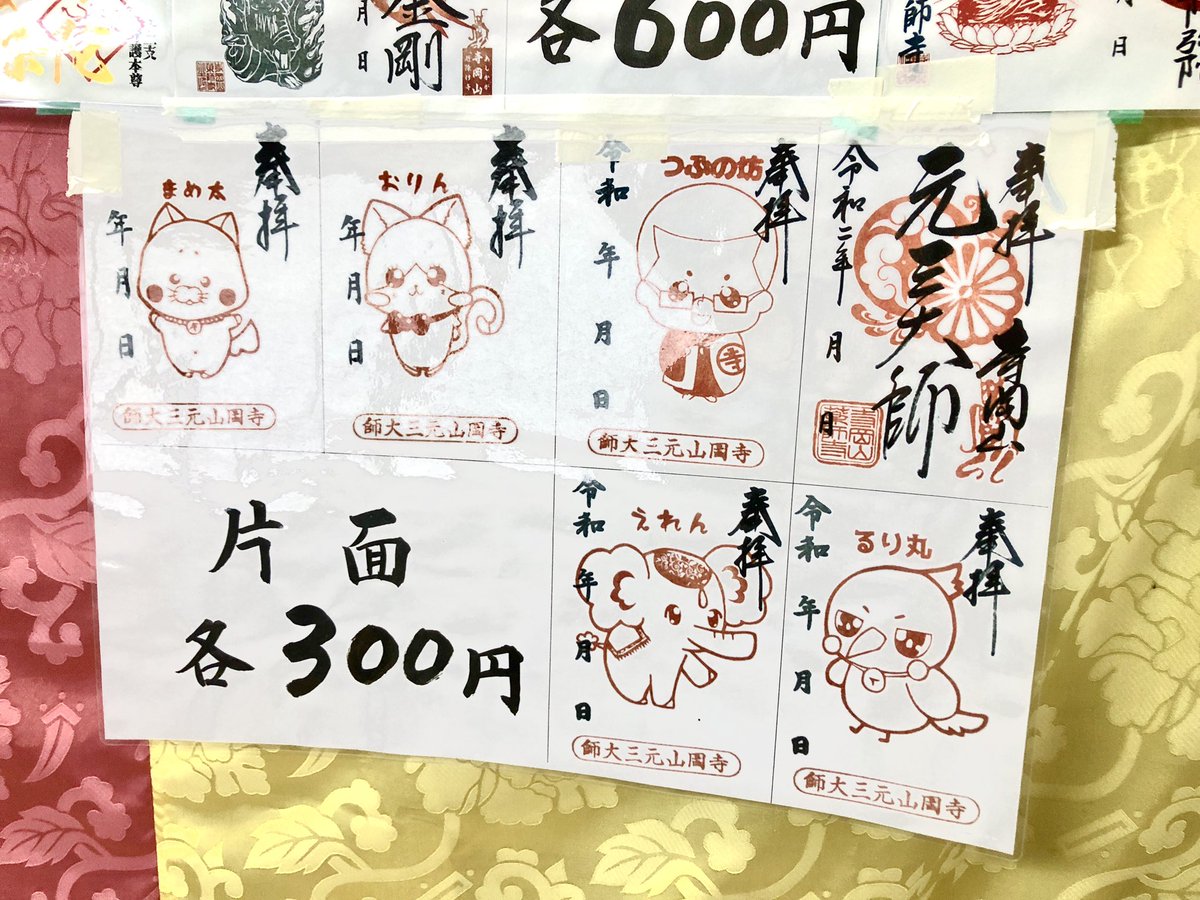 護本尊
月
日
金剛
寺岡山
各600円
月
日
奉拝
まめ太
年
月
日
師大三元山岡寺
奉拝
おりん
年
月
日
師大三元山岡寺
奉拝
つぶの坊
令和
年
月
日
寺
師大三元山岡寺
奉拝
寺岡山
元三大師
令和二年
月
日
片面
各300円
奉拝
えれん
令和
年
月
日
師大三元山岡寺
奉拝
るり丸
令和
年
月
日
師大三元山岡寺